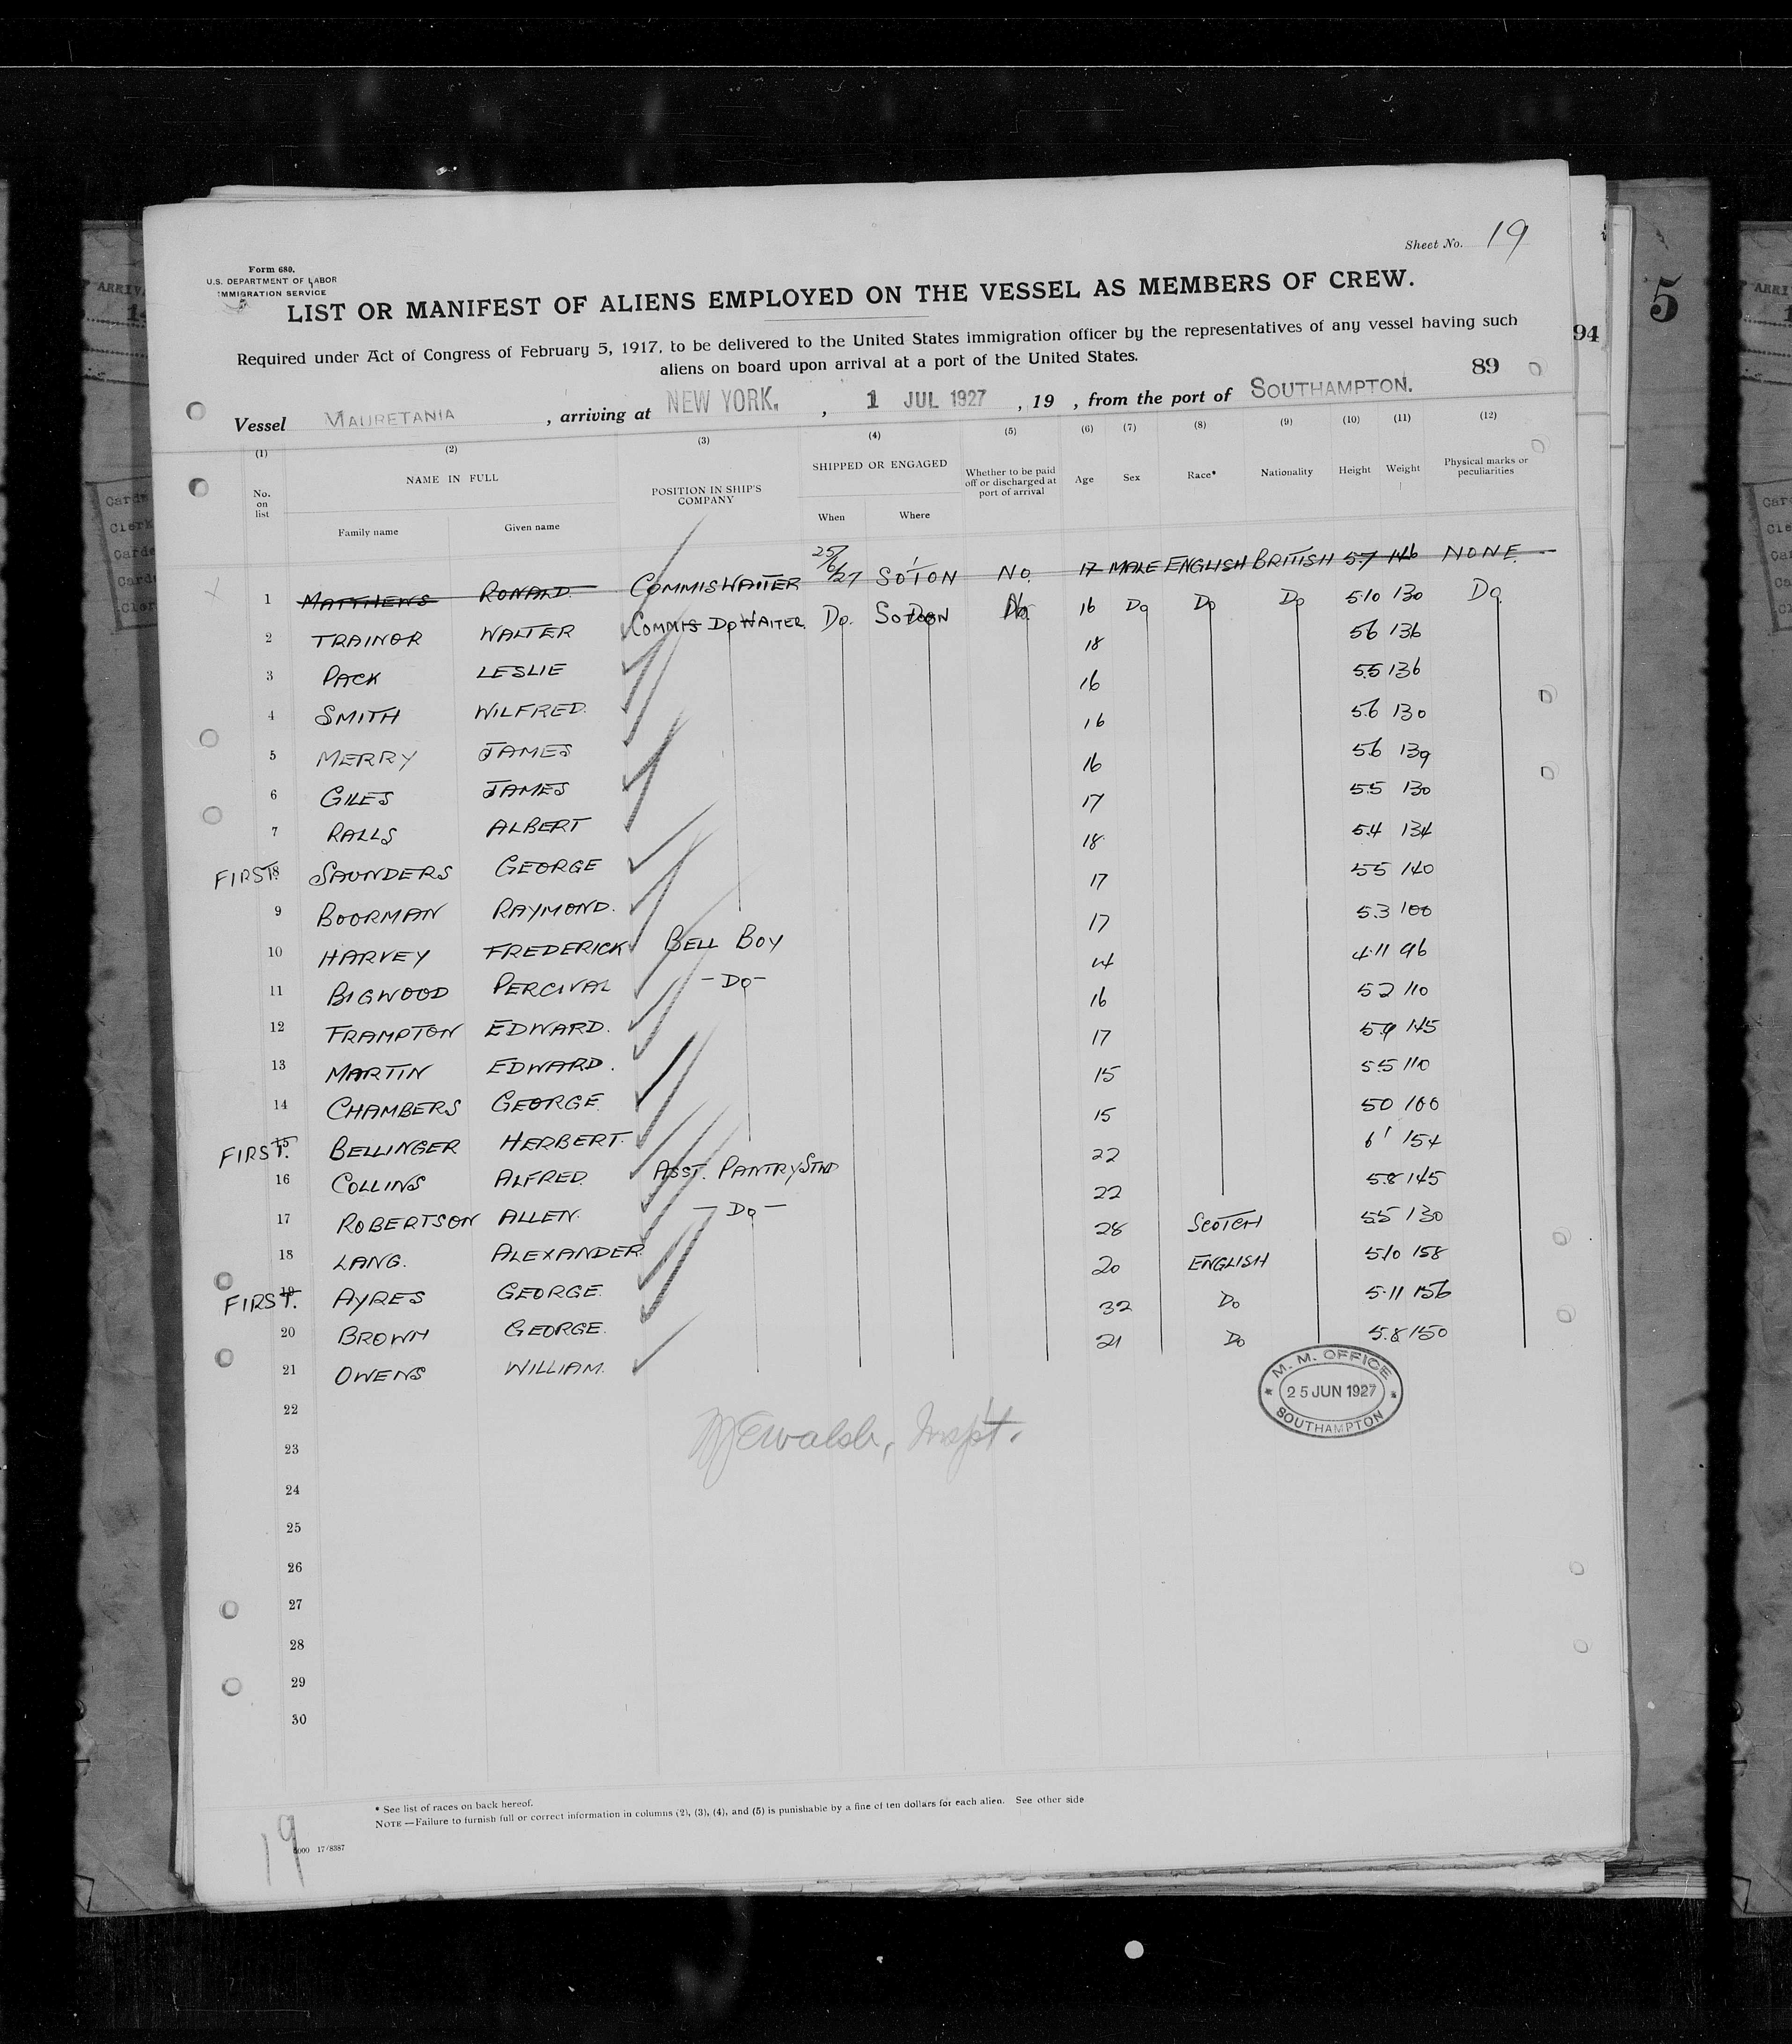 Sheet No. 19
Form 680.
U.S. DEPARTMENT OF LABOR
IMMIGRATION SERVICE
LIST OR MANIFEST OF ALIENS EMPLOYED ON THE VESSEL AS MEMBERS OF CREW.
Required under Act of Congress of February 5, 1917, to be delivered to the United States immigration officer by the representatives of any vessel having such
aliens on board upon arrival at a port of the United States.
94
5
89
Vessel MAURETANIA, arriving at NEW YORK., 1 JUL 1927, 19 , from the port of SOUTHAMPTON.
(1) (2) (3) (4) (5) (6) (7) (8) (9) (10) (11) (12)
No. on list NAME IN FULL Family name Given name POSITION IN SHIP'S COMPANY SHIPPED OR ENGAGED When Where Whether to be paid off or discharged at port of arrival Age Sex Race* Nationality Height Weight Physical marks or peculiarities
1 MATTHEWS RONALD. COMMIS WAITER 25/6/27 SOTON NO. 17 MALE ENGLISH BRITISH 5.7 146 NONE.
2 TRAINOR WALTER COMMIS DO WAITER. Do. SOTON No. 16 Do Do Do 5.10 130 Do.
3 PACK LESLIE 18 5.6 136
4 SMITH WILFRED. 16 5.5 136
5 MERRY JAMES 16 5.6 130
6 GILES JAMES 16 5.6 139
7 RALLS ALBERT 17 5.5 130
FIRST. 8 SAUNDERS GEORGE 18 5.4 134
9 BOORMAN RAYMOND. 17 5.5 140
10 HARVEY FREDERICK BELL BOY 17 5.3 100
11 BIGWOOD PERCIVAL - Do - 14 4.11 96
12 FRAMPTON EDWARD. 16 5.2 110
13 MARTIN EDWARD. 17 5.9 145
14 CHAMBERS GEORGE. 15 5.5 110
FIRST. 15 BELLINGER HERBERT. 15 5.0 100
16 COLLINS ALFRED. ASST. PANTRY STWD 22 6' 154
17 ROBERTSON ALLEN. - Do - 22 5.8 145
18 LANG. ALEXANDER. 28 SCOTCH 5.5 130
FIRST. 19 AYRES GEORGE. 20 ENGLISH 5.10 158
20 BROWN GEORGE. 32 Do 5.11 156
21 OWENS WILLIAM. 21 Do 5.8 150
M. M. OFFICE
25 JUN 1927
SOUTHAMPTON
22
23
24
25
26
27
28
29
30
* See list of races on back hereof.
NOTE.—Failure to furnish full or correct information in columns (2), (3), (4), and (5) is punishable by a fine of ten dollars for each alien. See other side
19
17/8387